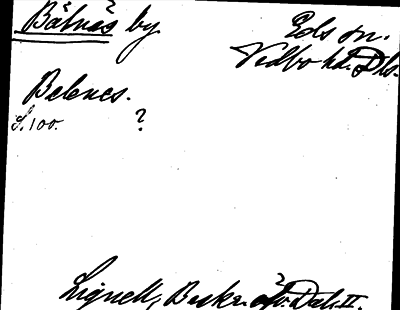 Båtnäs by
Eds sn.
Vedbo hd. Dls.
Belenes.
S. 100. ?
Lignell, Beskr. öfv. Dal. II.